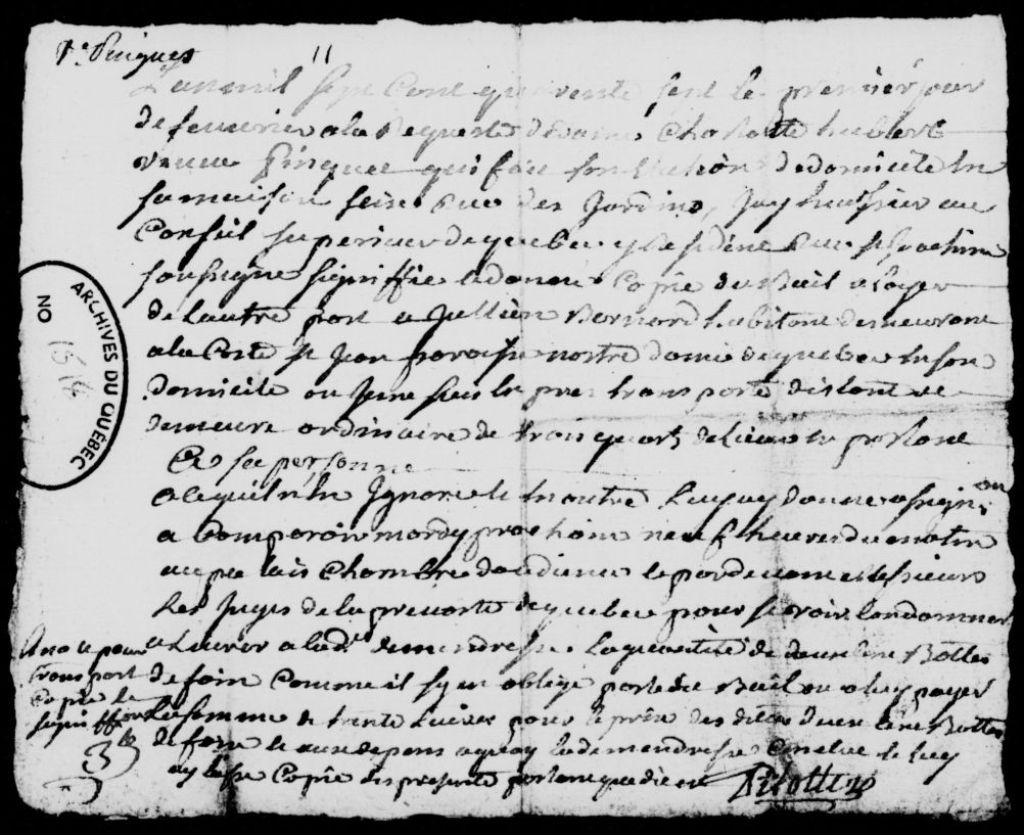 11
L'an mil sept Cent quarente sept le premier jour
de feuvrier a la Requeste de dame Charlotte hubert
veuve qui fait son Election de domicile En
sa maison seize Rue des Jardins, Jay huissier au
Conseil superieur de quebec y Residént Rue st Joachim
soussigné signiffié et donné Copie du Bail a Loyer
de Lautre part a Jullien Bernard habitant demeurant
a la Coste st Jean paroisse nostre dame de quebec En son
domicile ou Je me suis Exprés transporté distant de
demeure ordinaire de trois quarts de Lieue En parlant
a sa personne
a ce quil n'En Ignore Et En outre Luy ay donné assignon
a Comparoir mardy prochain neuf heures du matin
au palais Chambre daudience Et par devant messieurs
Les Juges de la prevosté de quebec pour se voir Condamner
a Livrer a lad. demandresse La quantité de deux Cent Bottes
de foin Comme il sy est obligé par led. Bail ou a luy payer
La somme de trente Livres pour le prix des dittes deux Cent Bottes
de foin Et aux depens a quoy la demandresse Conclue Et luy
ay Laissé Copie du present parlant que dit est
transport
Copie Et
signiffon
3
ARCHIVES DU QUÉBEC
NO